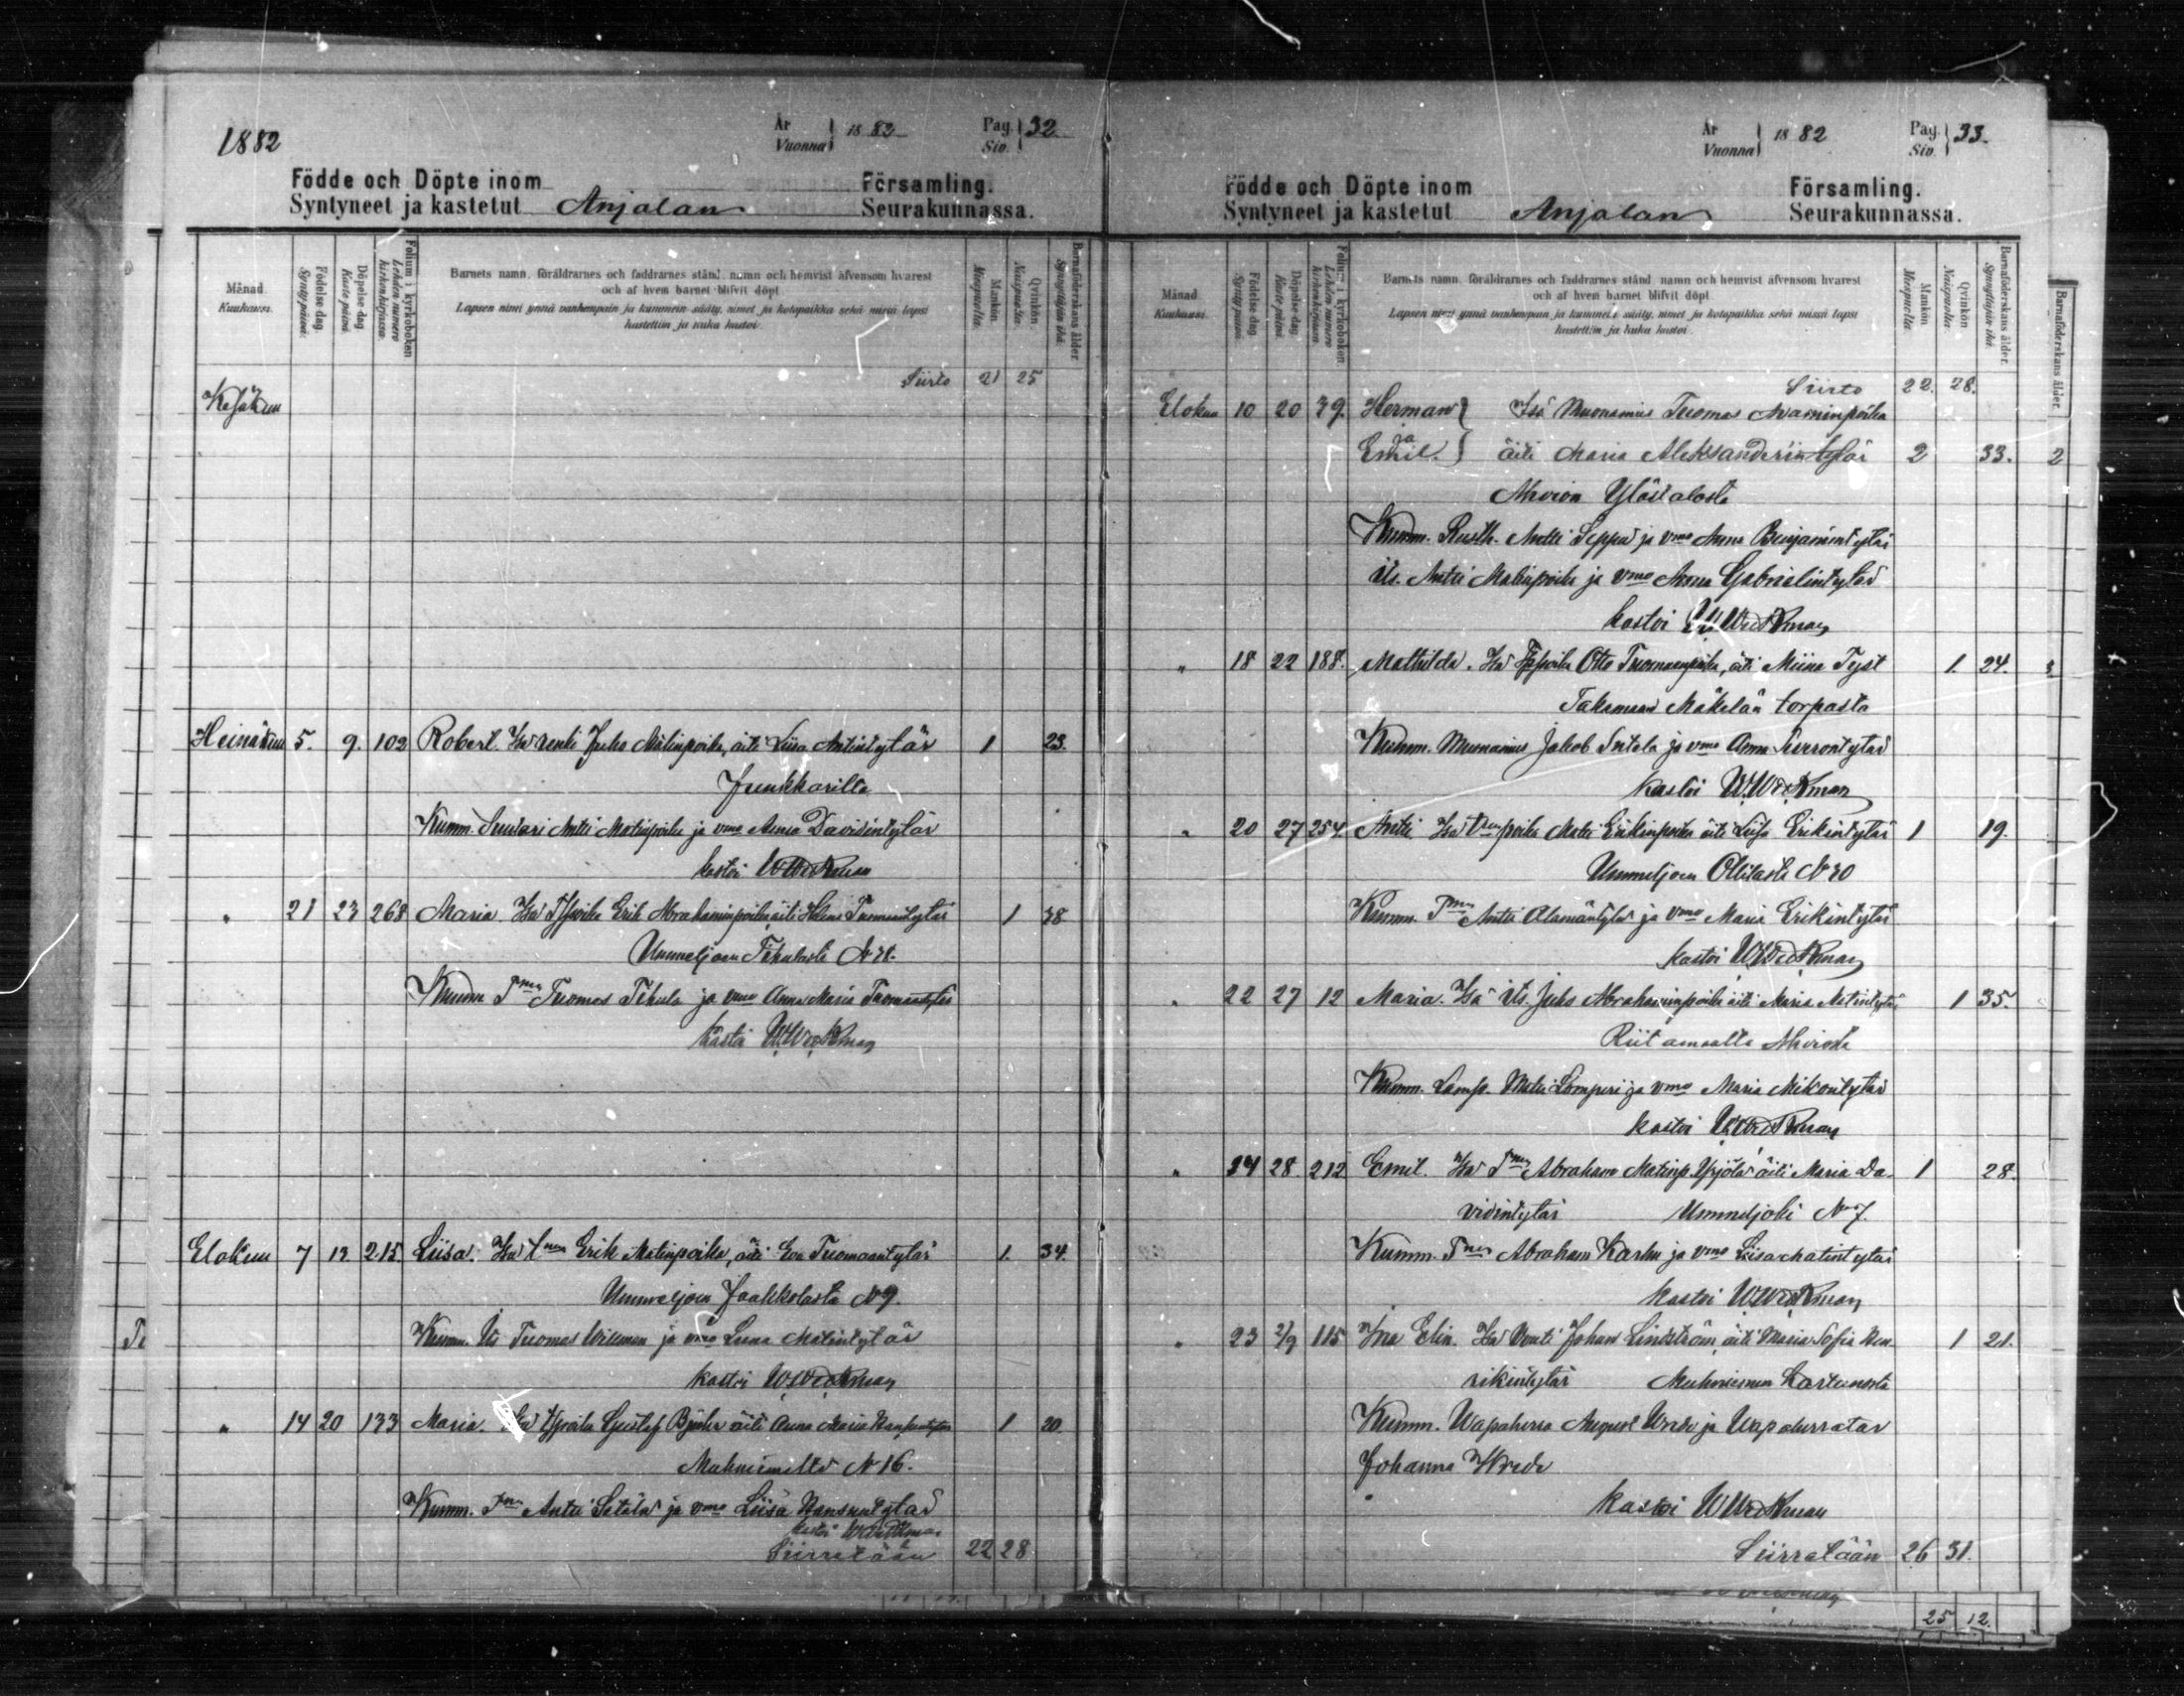 1882
År Vuonna 1882 Pag. Siv. 32
Födde och Döpte inom Församling.
Syntyneet ja kastetut Anjalan Seurakunnassa.
Månad. Kuukausi.
Födelse dag. Syntypäivä.
Döpelse dag. Kaste päivä.
Folium i kyrkoboken Lehden numero kirkonkirjassa.
Barnets namn, föräldrarnes och faddrarnes stånd, namn och hemvist äfvensom hvarest
och af hvem barnet blifvit döpt.
Lapsen nimi ynnä vanhempain ja kummein sääty, nimet ja kotopaikka sekä missä lapsi
kastettiin ja kuka kastoi.
Mankön Miespuolta.
Qvinkön Naispuolta.
Barnaföderskans ålder. Synnyttäjän ikä.
Siirto 21 25
Kesäkuu
Heinäkuu 5. 9. 102 Robert. Isä renki Juho Matinpoika, äiti Liisa Antintytär 1 23.
Junkkarilta
Kumm. Suutari Antti Matinpoika ja vmo Anna Davidintytär
kastoi W Wickman
" 21 23 268 Maria. Isä Erik Abrahaminpoika äiti Helena Tuomaantytär 1 38
Ummeljoen Tihulasta N
Kumm Tuomas Tihula ja vmo Anna Maria Tuomaantytär
kastoi W. Wickman
Elokuu 7 12 215. Liisa. Isä Erik Matinpoika, äiti Eva Tuomaantytär 1. 34.
Ummeljoen Jaakkolasta N 9.
Kumm. Its Tuomas Willman ja vmo Leena Matintytär
kastoi W Wickman
" 14 20 133 Maria. Isä Gustaf äiti Anna Maria 1 20.
Muhniemeltä N 16.
Kumm. Antti Setälä ja vmo Liisa Hansuntytär
kastoi W Wickman
Siirretään 22 28
År Vuonna 1882 Pag. Siv. 33.
Födde och Döpte inom Församling.
Syntyneet ja kastetut Anjalan Seurakunnassa.
Månad. Kuukausi.
Födelse dag. Syntypäivä.
Döpelse dag. Kaste päivä.
Folium i kyrkoboken. Lehden numero kirkonkirjassa.
Barnets namn, föräldrarnes och faddrarnes stånd, namn och hemvist äfvensom hvarest
och af hvem barnet blifvit döpt.
Lapsen nimi ynnä vanhempain ja kummein sääty, nimet ja kotopaikka sekä missä lapsi
kastettiin ja kuka kastoi.
Mankön Miespuolta.
Qvinkön Naispuolta.
Barnaföderskans ålder. Synnyttäjän ikä.
Barnaföderskans ålder.
Siirto 22. 28.
Elokuu 10 20 39. Herman Isä Muonamies Tuomas
ja Emil. äiti Maria Aleksanderintytär 2 33. 2
Ahvion Ylöstalosta
Kumm. Rusth. Antti Seppä ja vmo Anna Benjamintytär
its. Antti Matinpoika ja vmo Anna Gabrielintytär
kastoi W Wickman
" 18 22 188. Mathilda. Isä Otto Tuomaanpoika, äiti Miina Tyst 1. 24.
Takamaan Mäkelän torpasta
Kumm. Muonamies Jakob Setälä ja vmo Anna
kastoi W. Wickman
" 20 27 254. Antti Isä poika Matti Erikinpoika äiti Liisa Erikintytär 1 19.
Ummeljoen Ollilasta N
Kumm. Antti Alamäntylä ja vmo Maria Erikintytär
kastoi W Wickman
" 22 27 12 Maria. Isä its. Juho Abrahaminpoika äiti Maria Antintytär 1 35.
Riitamaalta Ahviosta
Kumm. Lamp. Matti Lomperi ja vmo Maria Mikontytär
kastoi W Wickman
" 24 28. 212 Emil. Isä Abraham Matinp. Yrjölä äiti Maria Da- 1 28.
vidintytär Ummeljoki N 7.
Kumm. Abraham Karhu ja vmo Liisa Matintytär
kastoi W. Wickman
" 23 2/9 115 Ina Elin. Isä Vouti Johan Lindström, äiti Maria Sofia Hen- 1 21.
rikintytär Muhniemen Kartanosta
Kumm. Wapaherra August Wrede ja Wapaherratar
Johanna Wrede
kastoi W Wickman
Siirretään 26 31.
25 12.